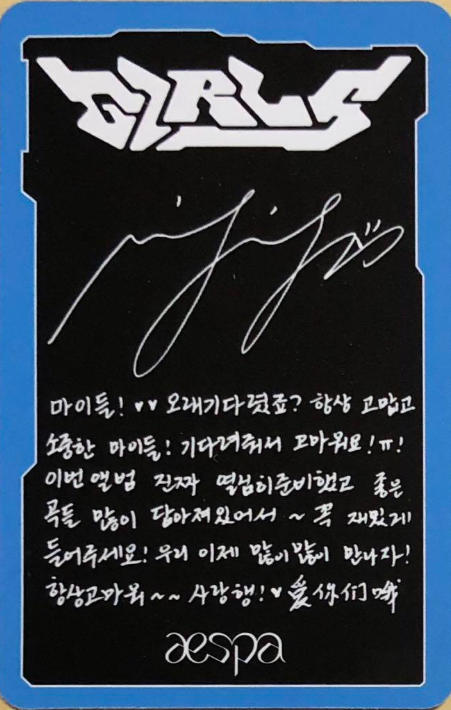 GIRLS
마이들! ♥♥ 오래기다렸죠? 항상 고맙고
소중한 마이들! 기다려줘서 고마워요! ㅠ!
이번 앨범 진짜 열심히준비했고 좋은
곡들 많이 담아져있어서 ~ 꼭 재밌게
들어주세요! 우리 이제 많이많이 만나자!
항상고마워 ~~ 사랑행! ♥ 愛你们哦
aespa